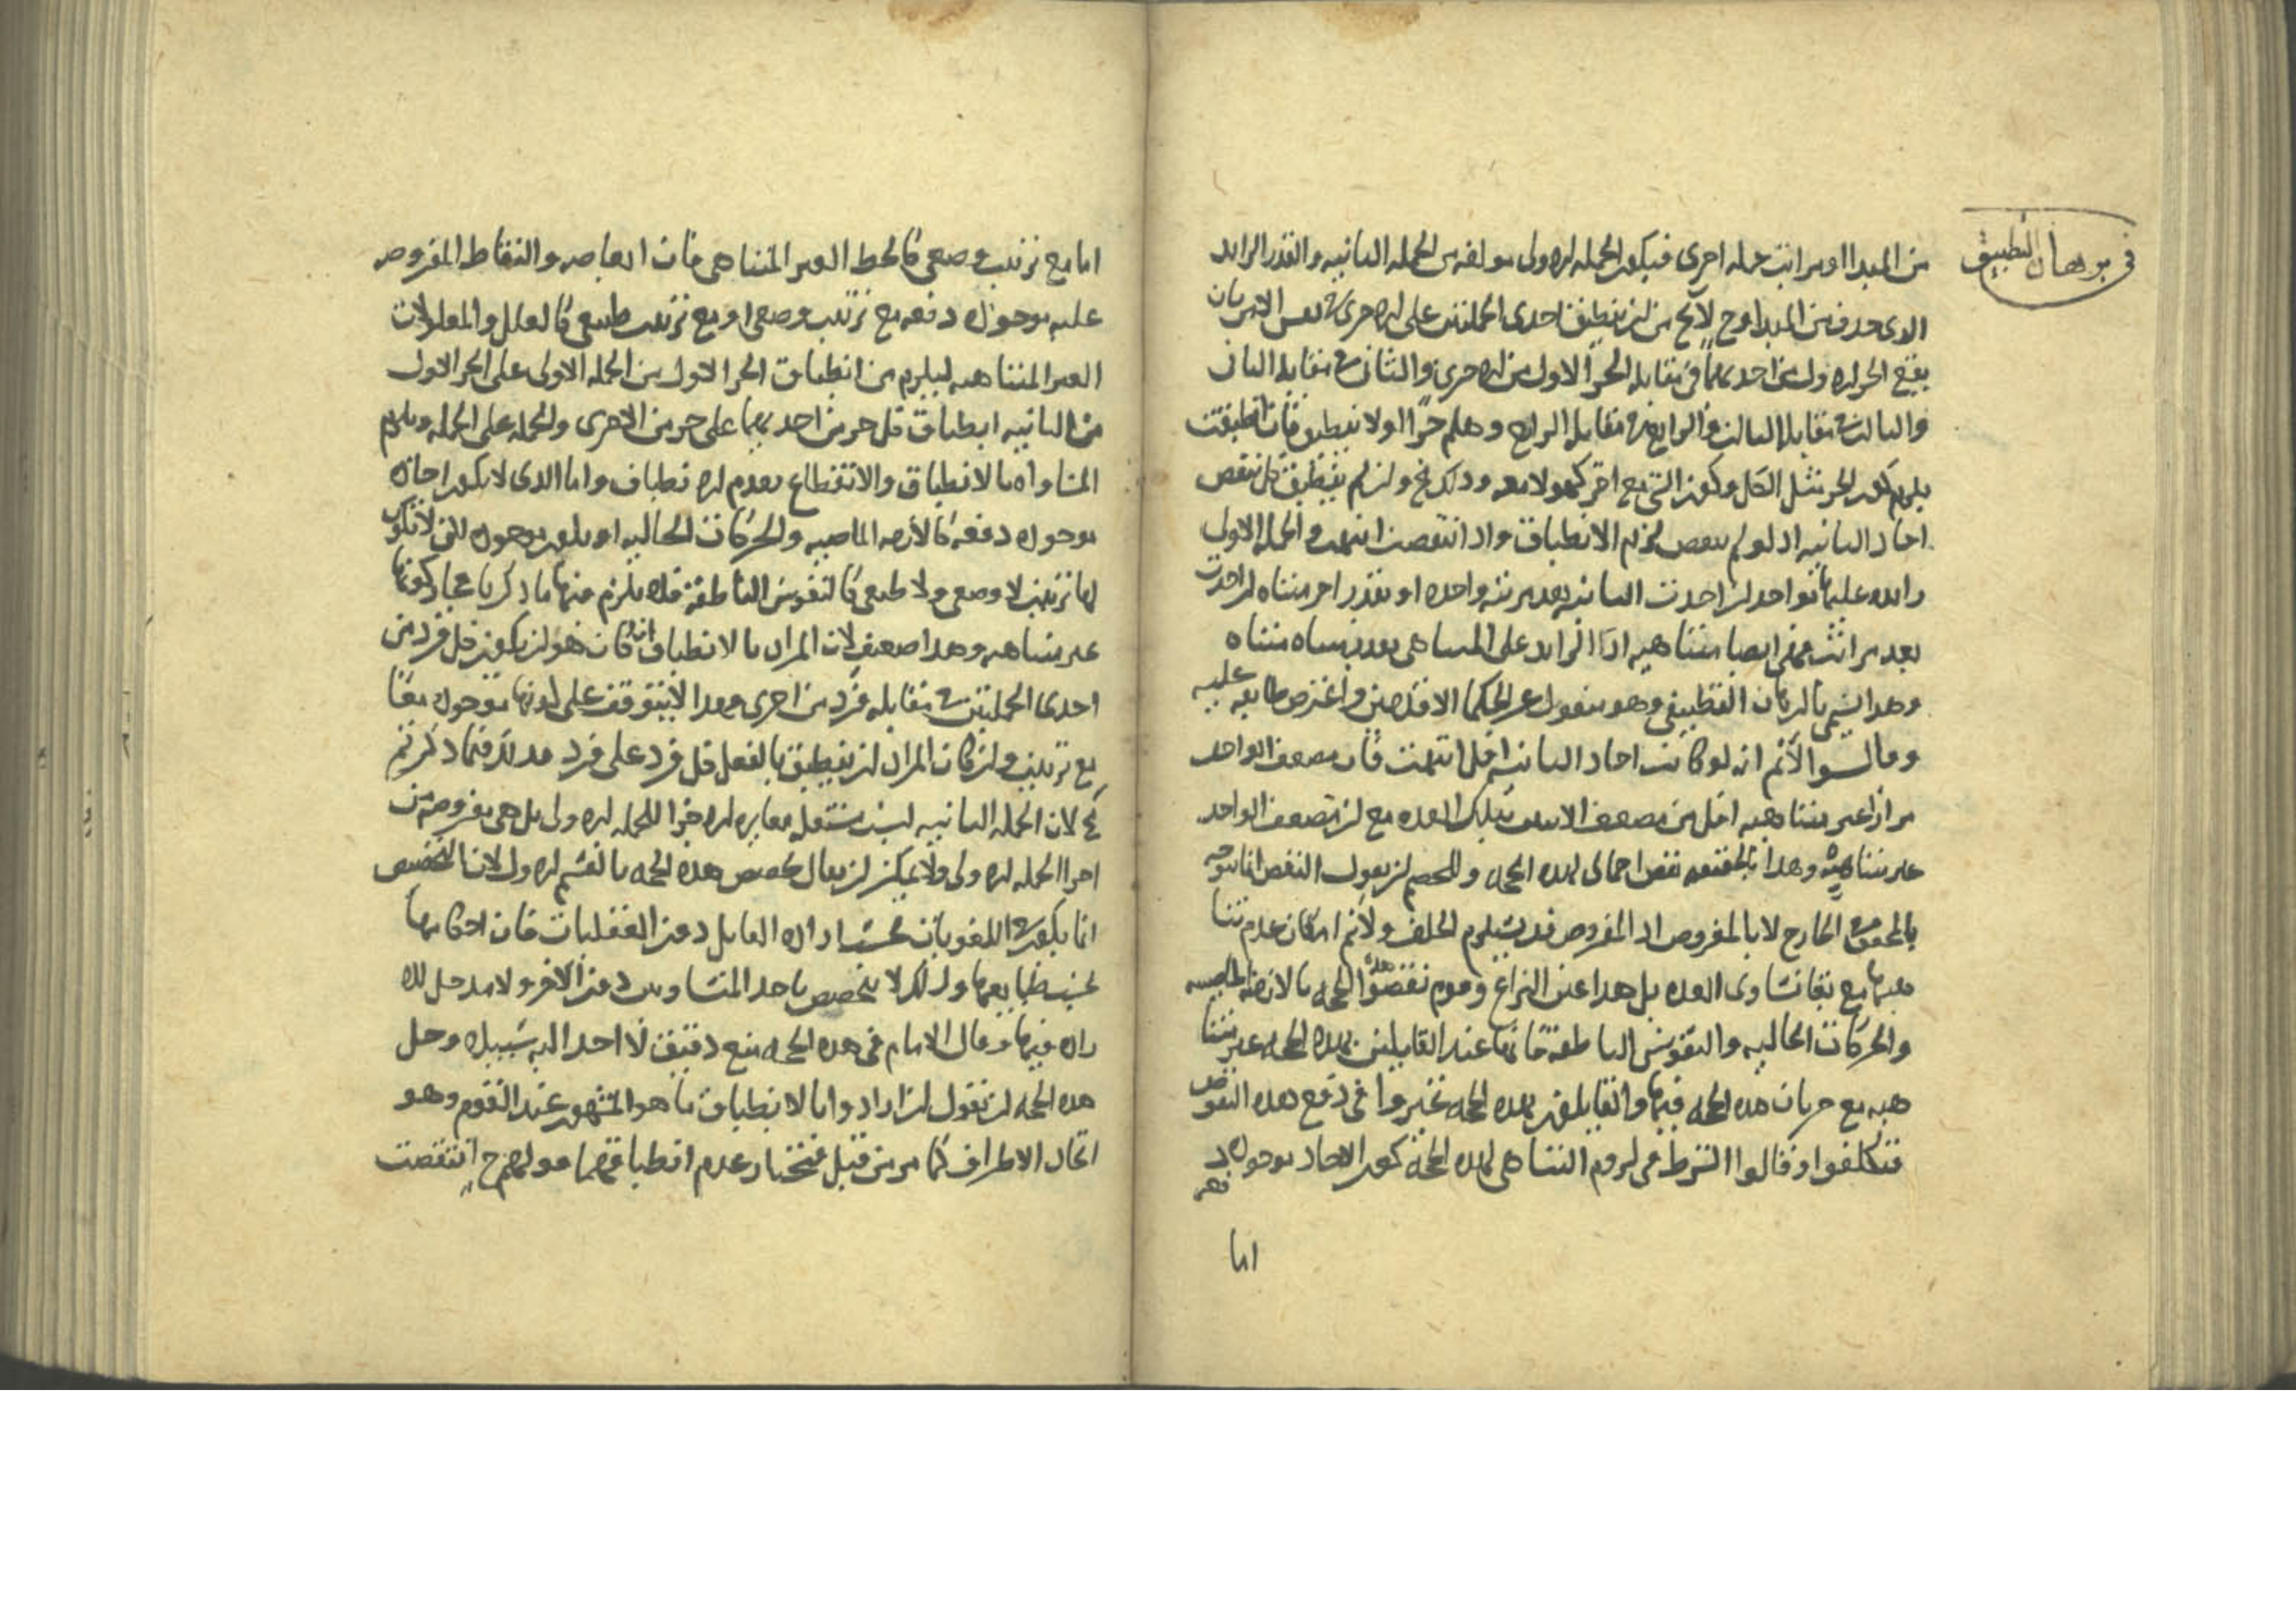 في برهان التطبيق
من المبدا او مراتب جمله اخرى فيكون الجمله الاولى مولفه من الجمله الثانيه والقدر الزايد
الذى حذف من المبدا وح لا يخ من ان ينطبق احدى الجملتين على الاخرى نفس الامر بان
يقع الجز الاول من احديهما فى مقابله الجزا الاول من الاخرى والثانى فى مقابله الثانى
والثالث فى مقابله الثالث والرابع فى مقابله الرابع وهلم جرّا او لا ينطبق فان انطبقت
يلزم كون الجز مثل الكل وكون الشى مع اخر كهو لا معه وذلك مح وان لم ينطبق كل نقص
احاد الثانيه اذ لو لم ينقص لزم الانطباق واذا انتقصت انتهت والجمله الاولى
زايده عليها بواحد ان اخذت الثانيه بعد مرتبه واحده او بقدر اخر متناه ان اخذت
بعد مراتب فهى ايضا متناهيه اذ الزايد على المتناهى بعدد متناه متناه
وهذا يسمى بالبرهان التطبيقى وهو منقول عن الحكما الاقدمين واعترض طايفه عليه
وقالوا لانم انه لو كانت احاد الثانيه اقل انتهت فان تضعيف الواحد
مرارا غير متناهيه اقل من تضعيف الاثنين بتلك العده مع ان تضعيف الواحد
غير متناهيه وهذا بالحقيقه نقض اجمالى لهذه الحجه وللخصم ان يقول النقض انما يتوجه
بالمحقق فى الخارج لا بالمفروض اذ المفروض قد يستلزم الخلف ولانم امكان عدم تنا
هيهما مع بقا تساوى العده بل هذا عين النزاع وقوم نقضوا هذه الحجه بالازمنه الماضيه
والحركات الخاليه والنفوس الناطقه فانها عند القايلين بهذه الحجه غير متنا
هيه مع جريان هذه الحجه فيها والقايلون بهذه الحجه تحيروا فى دفع هذه النقوض
فتكلفوا وقالوا الشرط فى لزوم التناهى لهذه الحجه كون الاحاد موجوده د
فعه
اما
اما مع ترتيب وضعى كالخط الغير المتناهى فان ابعاضه والنقاط المفروضه
عليه موجوده دفعه مع ترتيب وضعى او مع ترتيب طبيعى كالعلل والمعلولات
الغير المتناهيه ليلزم من انطباق الجز الاول من الجمله الاولى على الجز الاول
من الثانيه انطباق كل جز من احديهما على جز من الاخرى والجمله على الجمله ويلزم
المساواه بالانطباق والانقطاع بعدم الانطباق واما الذى لا يكون احاده
موجوده دفعه كالازمنه الماضيه والحركات الخاليه او يكون موجوده لكن لا يكون
لها ترتيب لا وضعى ولا طبيعى كالنفوس الناطقه فلا يلزم منها ما ذكرنا فجاز كونها
غير متناهيه وهذا ضعيف لان المراد بالانطباق انه كان هو ان يكون كل فرد من
احدى الجملتين فى مقابله فرد من اخرى وهذا لا يتوقف على كونها موجوده معًا
مع ترتيب وان كان المراد ان ينطبق بالفعل كل فرد على فرد فذلك فيما ذكرتم
مح لان الجمله الثانيه ليست مستقله مغايره الاجزا للجمله الاولى بل هى مفروضه من
اجزا الجمله الاولى ولا يمكن ان يقال تخصيص هذه الحجه بالقسم الاول لان التخصيص
انما يكون فى اللغويات بحسب اراده القايل دون العقليات فان احكامها
بحسب طبايعها ولذلك لا يتخصص باحد المتساويين دون الاخر ولا مدخل للا
راده فيها وقال الامام فى هذه الحجه منع دقيق لا احد اليه سبيلا وحل
هذه الحجه ان نقول ان ارادوا بالانطباق ما هو المشهور عند القوم وهو
اتحاد الاطراف كما مر من قبل فنختار عدم انطباقهما قولهم ح انتقصت